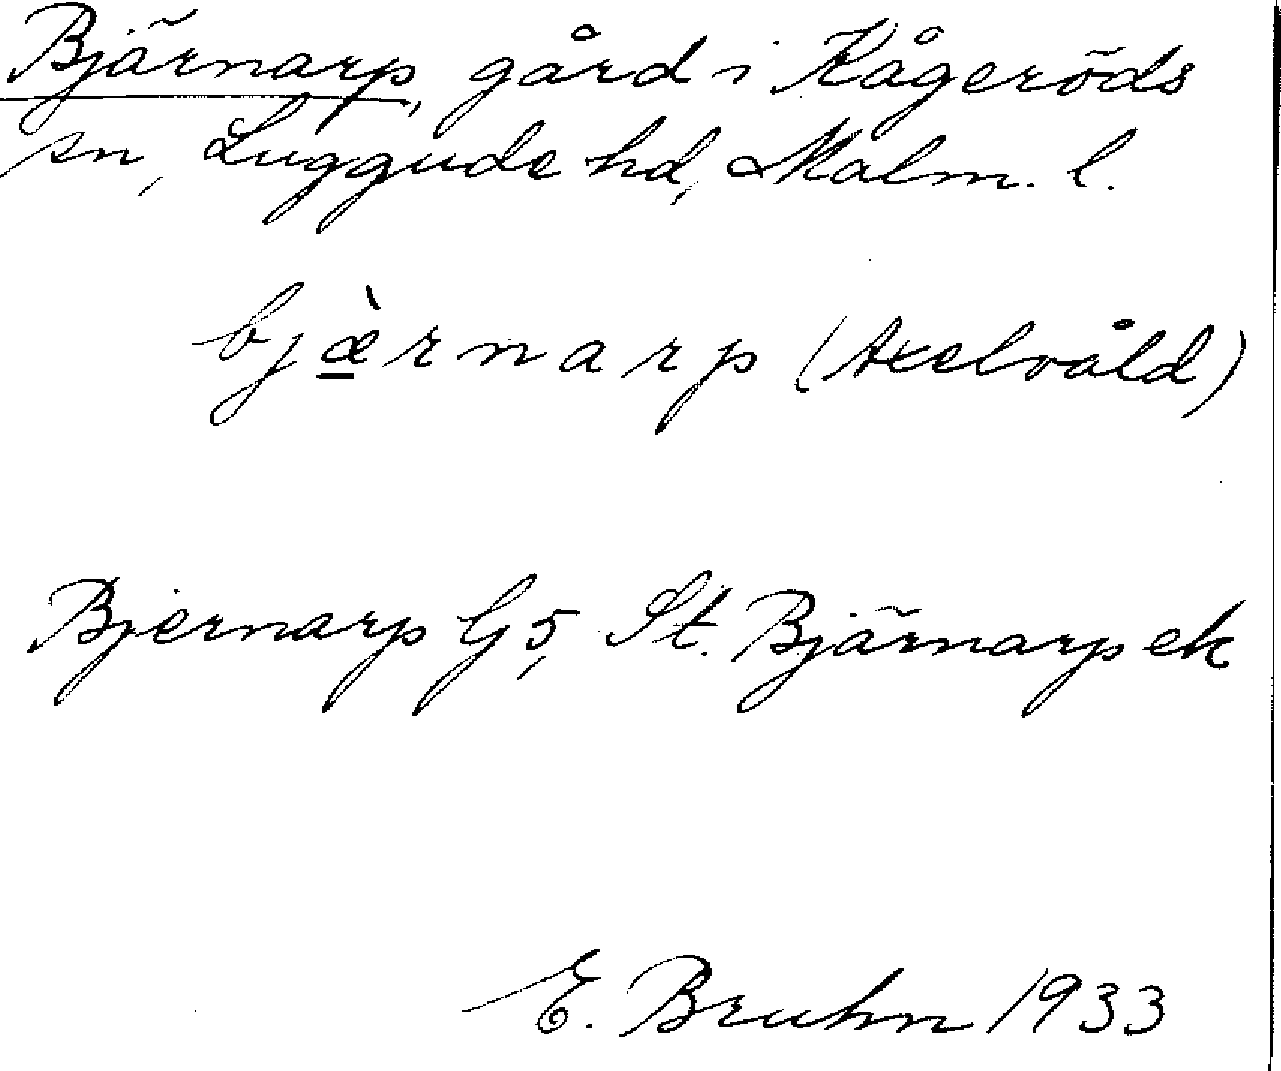 Bjärnarp, gård i Kågeröds
sn, Luggude hd, Malm. l.
bjæ̀rnarp (Axelvåld)
Bjernarp G5, St. Bjärnarp ek
E. Bruhn 1933